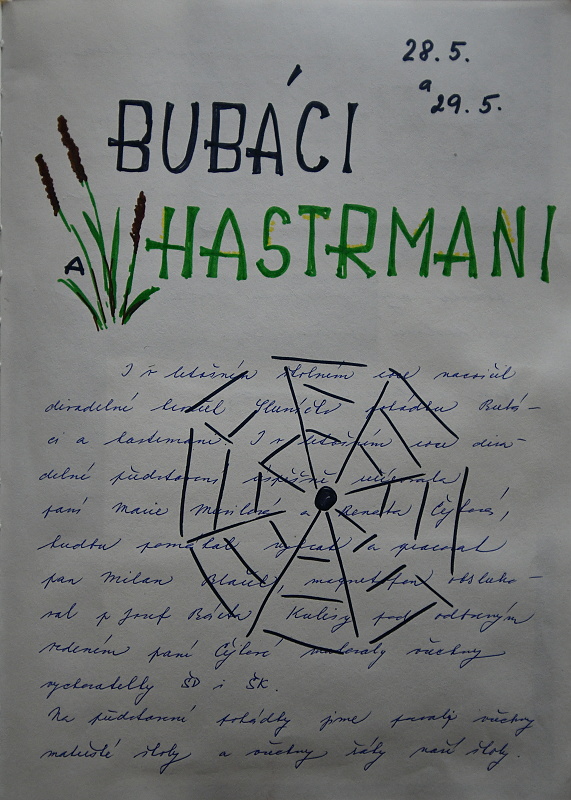 28. 5.
a
29. 5.
BUBÁCI
A HASTRMANI
I v letošním školním roce nacvičil
divadelní kroužek Sluníčko pohádku Bubá-
ci a hastrmani. I v letošním roce diva-
delní představení úspěšně
paní Marie a Renata Čýlová,
hudbu pomáhal vybrat a pracoval
pan Milan magnetofon obsluho-
val p. Josef Kulisy pod odborným
vedením paní Čýlové malovaly všechny
vychovatelky ŠD i ŠK.
Na představení pohádky jsme pozvali všechny
mateřské školy a všechny žáky naší školy.